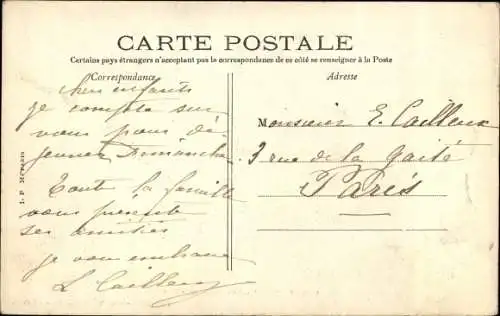 CARTE POSTALE
Certains pays étrangers n'acceptant pas la correspondance de ce côté se renseigner à la Poste
Correspondance
Adresse
Chers enfants
je compte sur
vous pour dé-
jeuner Dimanche
Toute la famille
vous présente
ses amitiés
je vous embrasse
L Cailleux
Monsieur E. Cailleux
3 rue de la Gaité
Paris
I. P.